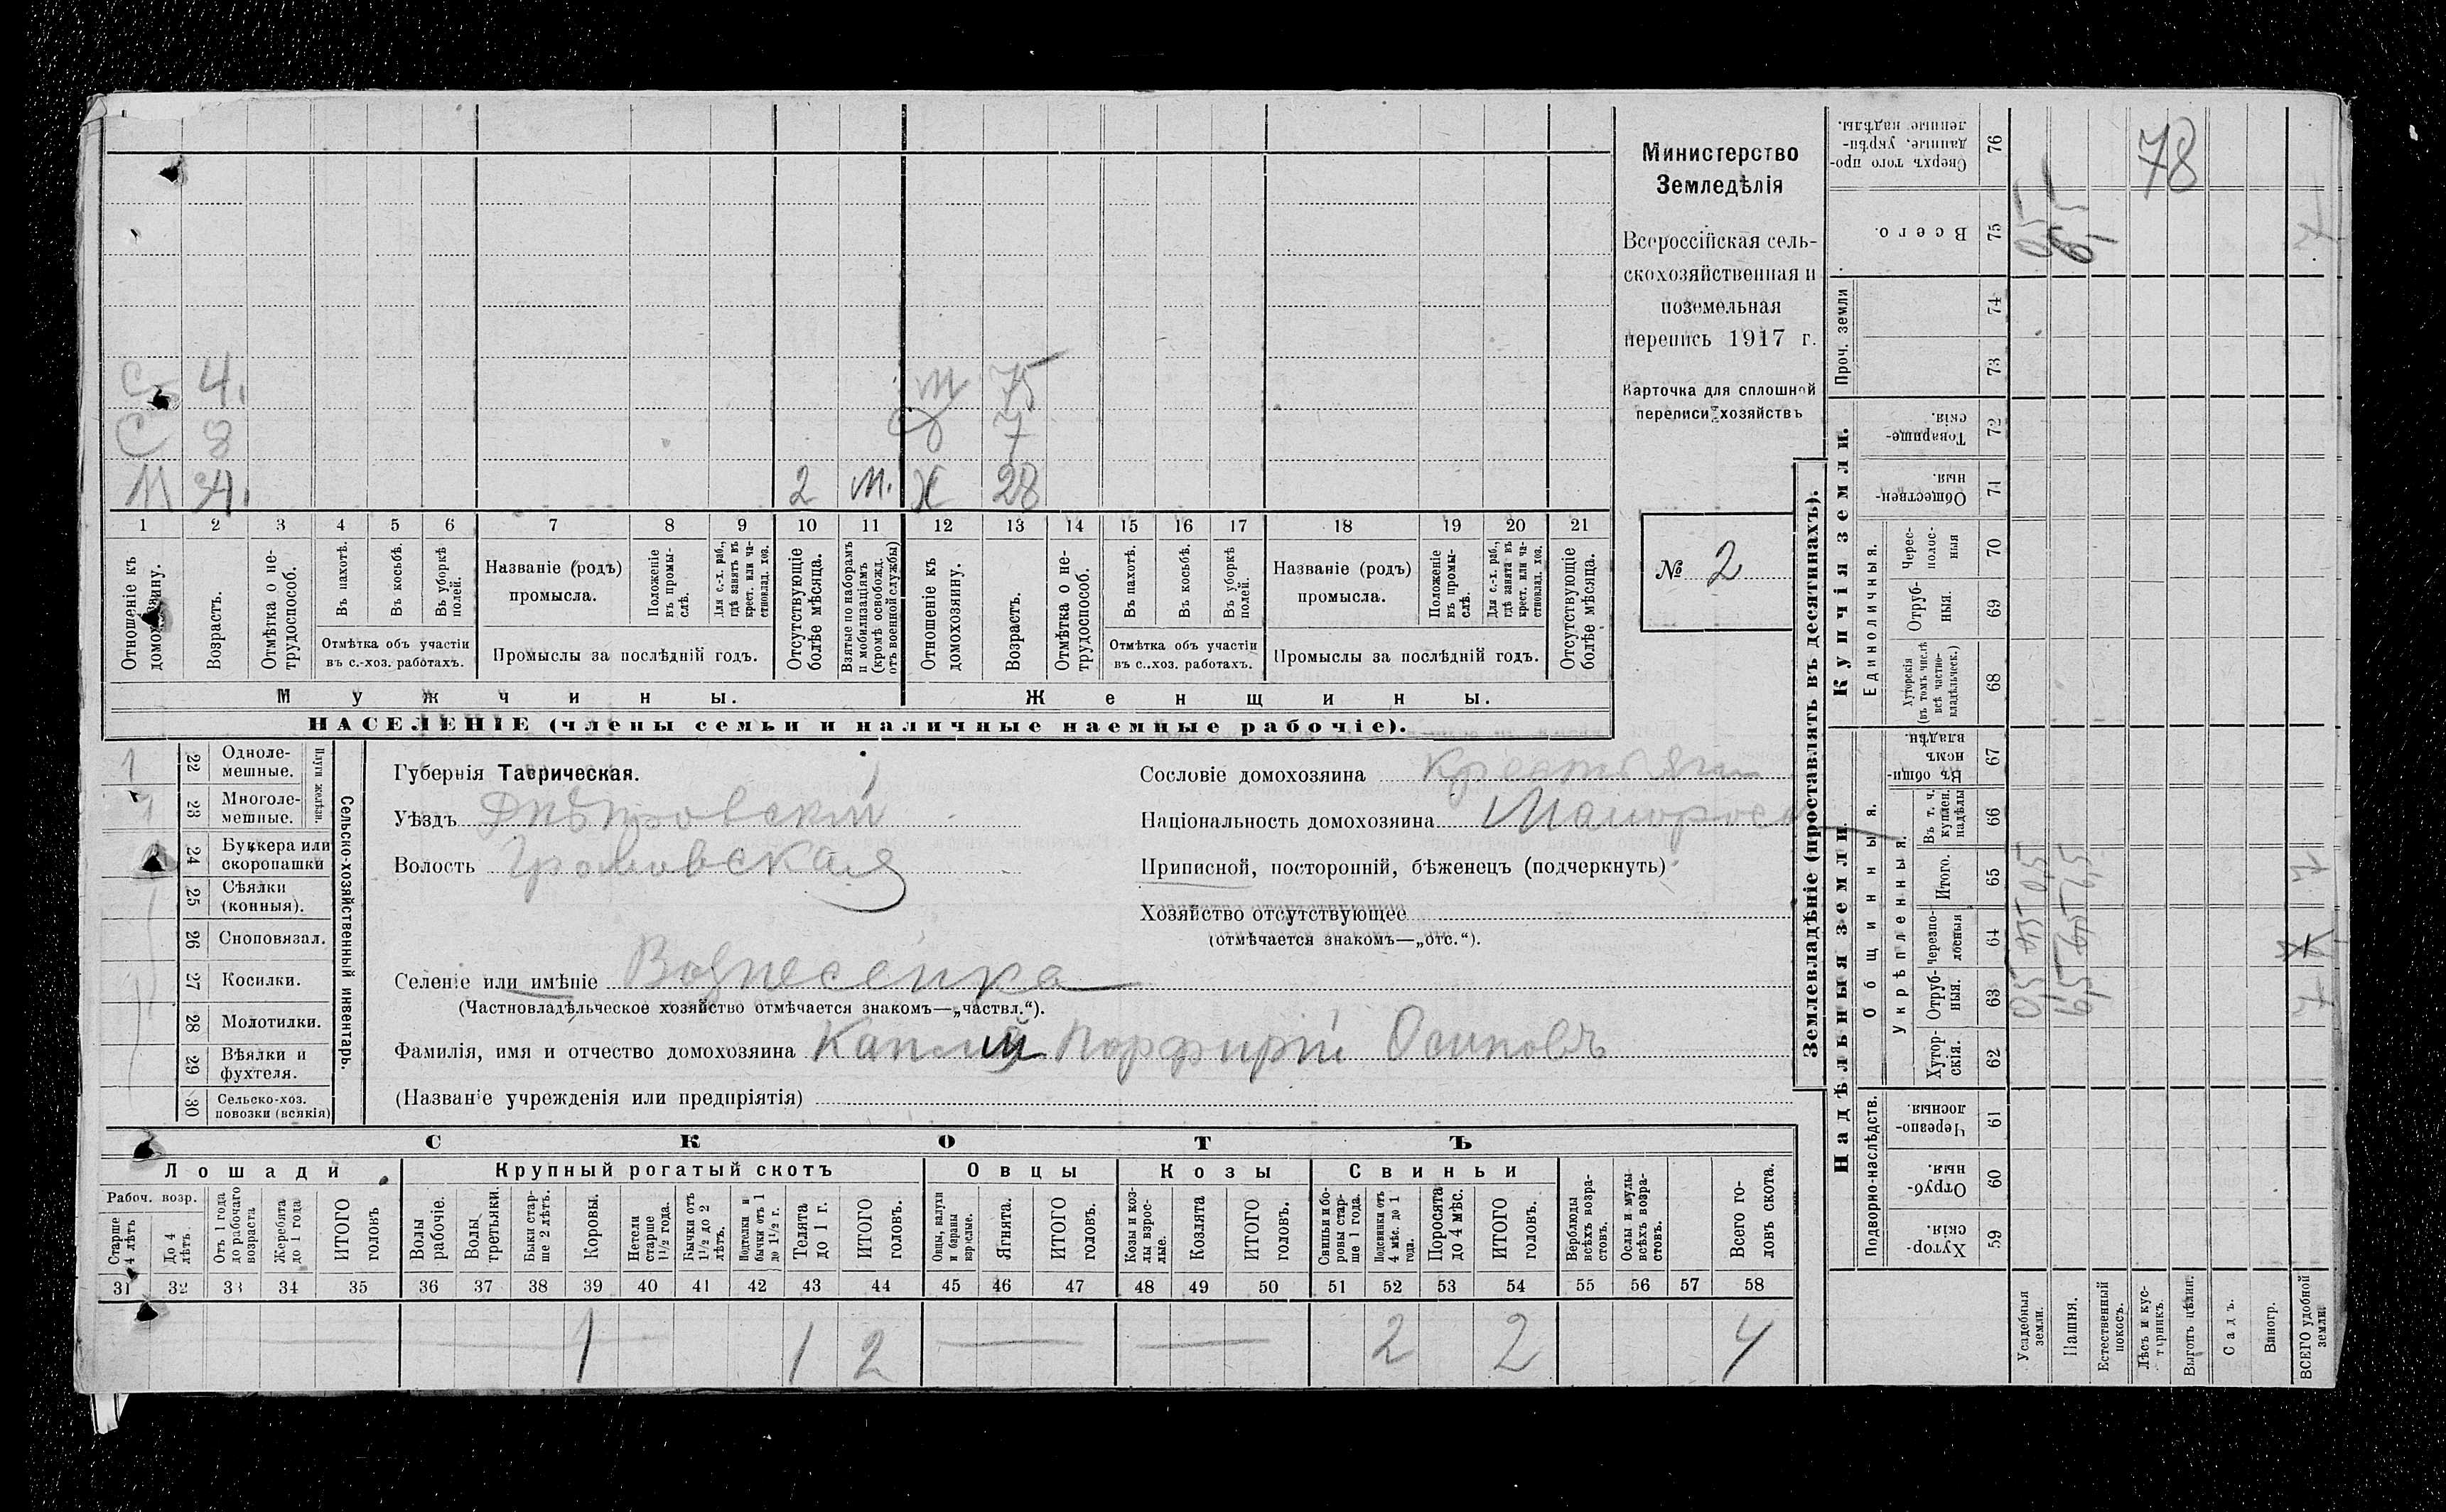 С 4. М 75
С 8 Д 7
М 34. 2 м. Ж 28
1 2 3 4 5 6 7 8 9 10 11 12 13 14 15 16 17 18 19 20 21
Отношеніе къ домохозяину.
Возрастъ.
Отмѣтка о нетрудоспособ.
Въ пахотѣ.
Въ косьбѣ.
Въ уборкѣ полей.
Отмѣтка объ участіи
въ с.-хоз. работахъ.
Названіе (родъ)
промысла.
Положеніе въ промыслѣ.
Для с.-х. раб., гдѣ занятъ въ крест. или частновлад. хоз.
Промыслы за послѣдній годъ.
Отсутствующіе болѣе мѣсяца.
Взятые по наборамъ и мобилизаціямъ (кромѣ освобожд. отъ военной службы)
Отношеніе къ домохозяину.
Возрастъ.
Отмѣтка о нетрудоспособ.
Въ пахотѣ.
Въ косьбѣ.
Въ уборкѣ полей.
Отмѣтка объ участіи
въ с..хоз. работахъ.
Названіе (родъ)
промысла.
Положеніе въ промыслѣ.
Для с.-х. раб., гдѣ занята въ крест. или частновлад. хоз.
Промыслы за послѣдній годъ.
Отсутствующіе болѣе мѣсяца.
Мужчины. Женщины.
НАСЕЛЕНІЕ (члены семьи и наличные наемные рабочіе).
Министерство
Земледѣлія
Всероссійская сель-
скохозяйственная и
поземельная
перепись 1917 г.
Карточка для сплошной
переписи хозяйствъ
№ 2
Сельско-хозяйственный инвентарь.
Плуги желѣзн.
1 22 Одноле-
мешные.
23 Многоле-
мешные.
24 Буккера или
скоропашки
25 Сѣялки
(конныя).
26 Сноповязал.
27 Косилки.
28 Молотилки.
29 Вѣялки и
фухтеля.
30 Сельско-хоз.
повозки (всякія)
Губернія Таврическая.
Уѣздъ Днѣпровскій
Волость Громовская
Селеніе или имѣніе Вознесенка
(Частновладѣльческое хозяйство отмѣчается знакомъ—„частвл.“).
Фамилія, имя и отчество домохозяина Порфирій Осиповъ
(Названіе учрежденія или предпріятія)
Сословіе домохозяина крестьян
Національность домохозяина Малоросс
Приписной, посторонній, бѣженецъ (подчеркнуть)
Хозяйство отсутствующее
(отмѣчается знакомъ—„отс.“).
СКОТЪ
Лошади Крупный рогатый скотъ Овцы Козы Свиньи
Рабоч. возр.
Старше 4 лѣтъ
До 4 лѣтъ
Отъ 1 года до рабочаго возраста
Жеребята до 1 года
ИТОГО головъ
Волы рабочіе.
Волы третьяки.
Быки старше 2 лѣтъ.
Коровы.
Нетели старше 1½ года.
Бычки отъ 1½ до 2 лѣтъ.
Подтелки и бычки отъ 1 до 1½ г.
Телята до 1 г.
ИТОГО головъ.
Овцы, валухи и бараны взрослые.
Ягнята.
ИТОГО головъ.
Козы и козлы взрослые.
Козлята
ИТОГО головъ.
Свиньи и боровы старше 1 года.
Подсвинки отъ 4 мѣс. до 1 года.
Поросята до 4 мѣс.
ИТОГО головъ.
Верблюды всѣхъ возрастовъ.
Ослы и мулы всѣхъ возрастовъ.
Всего головъ скота.
31 32 33 34 35 36 37 38 39 40 41 42 43 44 45 46 47 48 49 50 51 52 53 54 55 56 57 58
1 1 2 2 2 4
Землевладѣніе (проставлять въ десятинахъ).
Надѣльныя земли.
Купчія земли.
Проч. земли
Подворно-наслѣдств.
Общинныя.
Укрѣпленныя.
Единоличныя.
Сверхъ того проданные, укрѣпленные надѣлы. 76 78
Всего. 75 0,5 6,5 7
74
73
Товарищескія. 72
Общественныя. 71
Чересполосныя 70
Отрубныя. 69
Хуторскія (въ томъ числѣ всѣ частновладѣльческ.) 68
Въ общинномъ владѣн. 67
Въ т. ч. куплен. надѣлы 66
Итого. 65 0,5 6,5 7
Черезполосныя 64
Отрубныя. 63 0,5 6,5 7
Хуторскія. 62
Черезполосныя. 61
Отрубныя. 60
Хуторскія. 59
Усадебныя земли.
Пашня.
Естественный покосъ.
Лѣсъ и кустарникъ.
Выгонъ цѣлин.
Садъ.
Виногр.
ВСЕГО удобной земли.